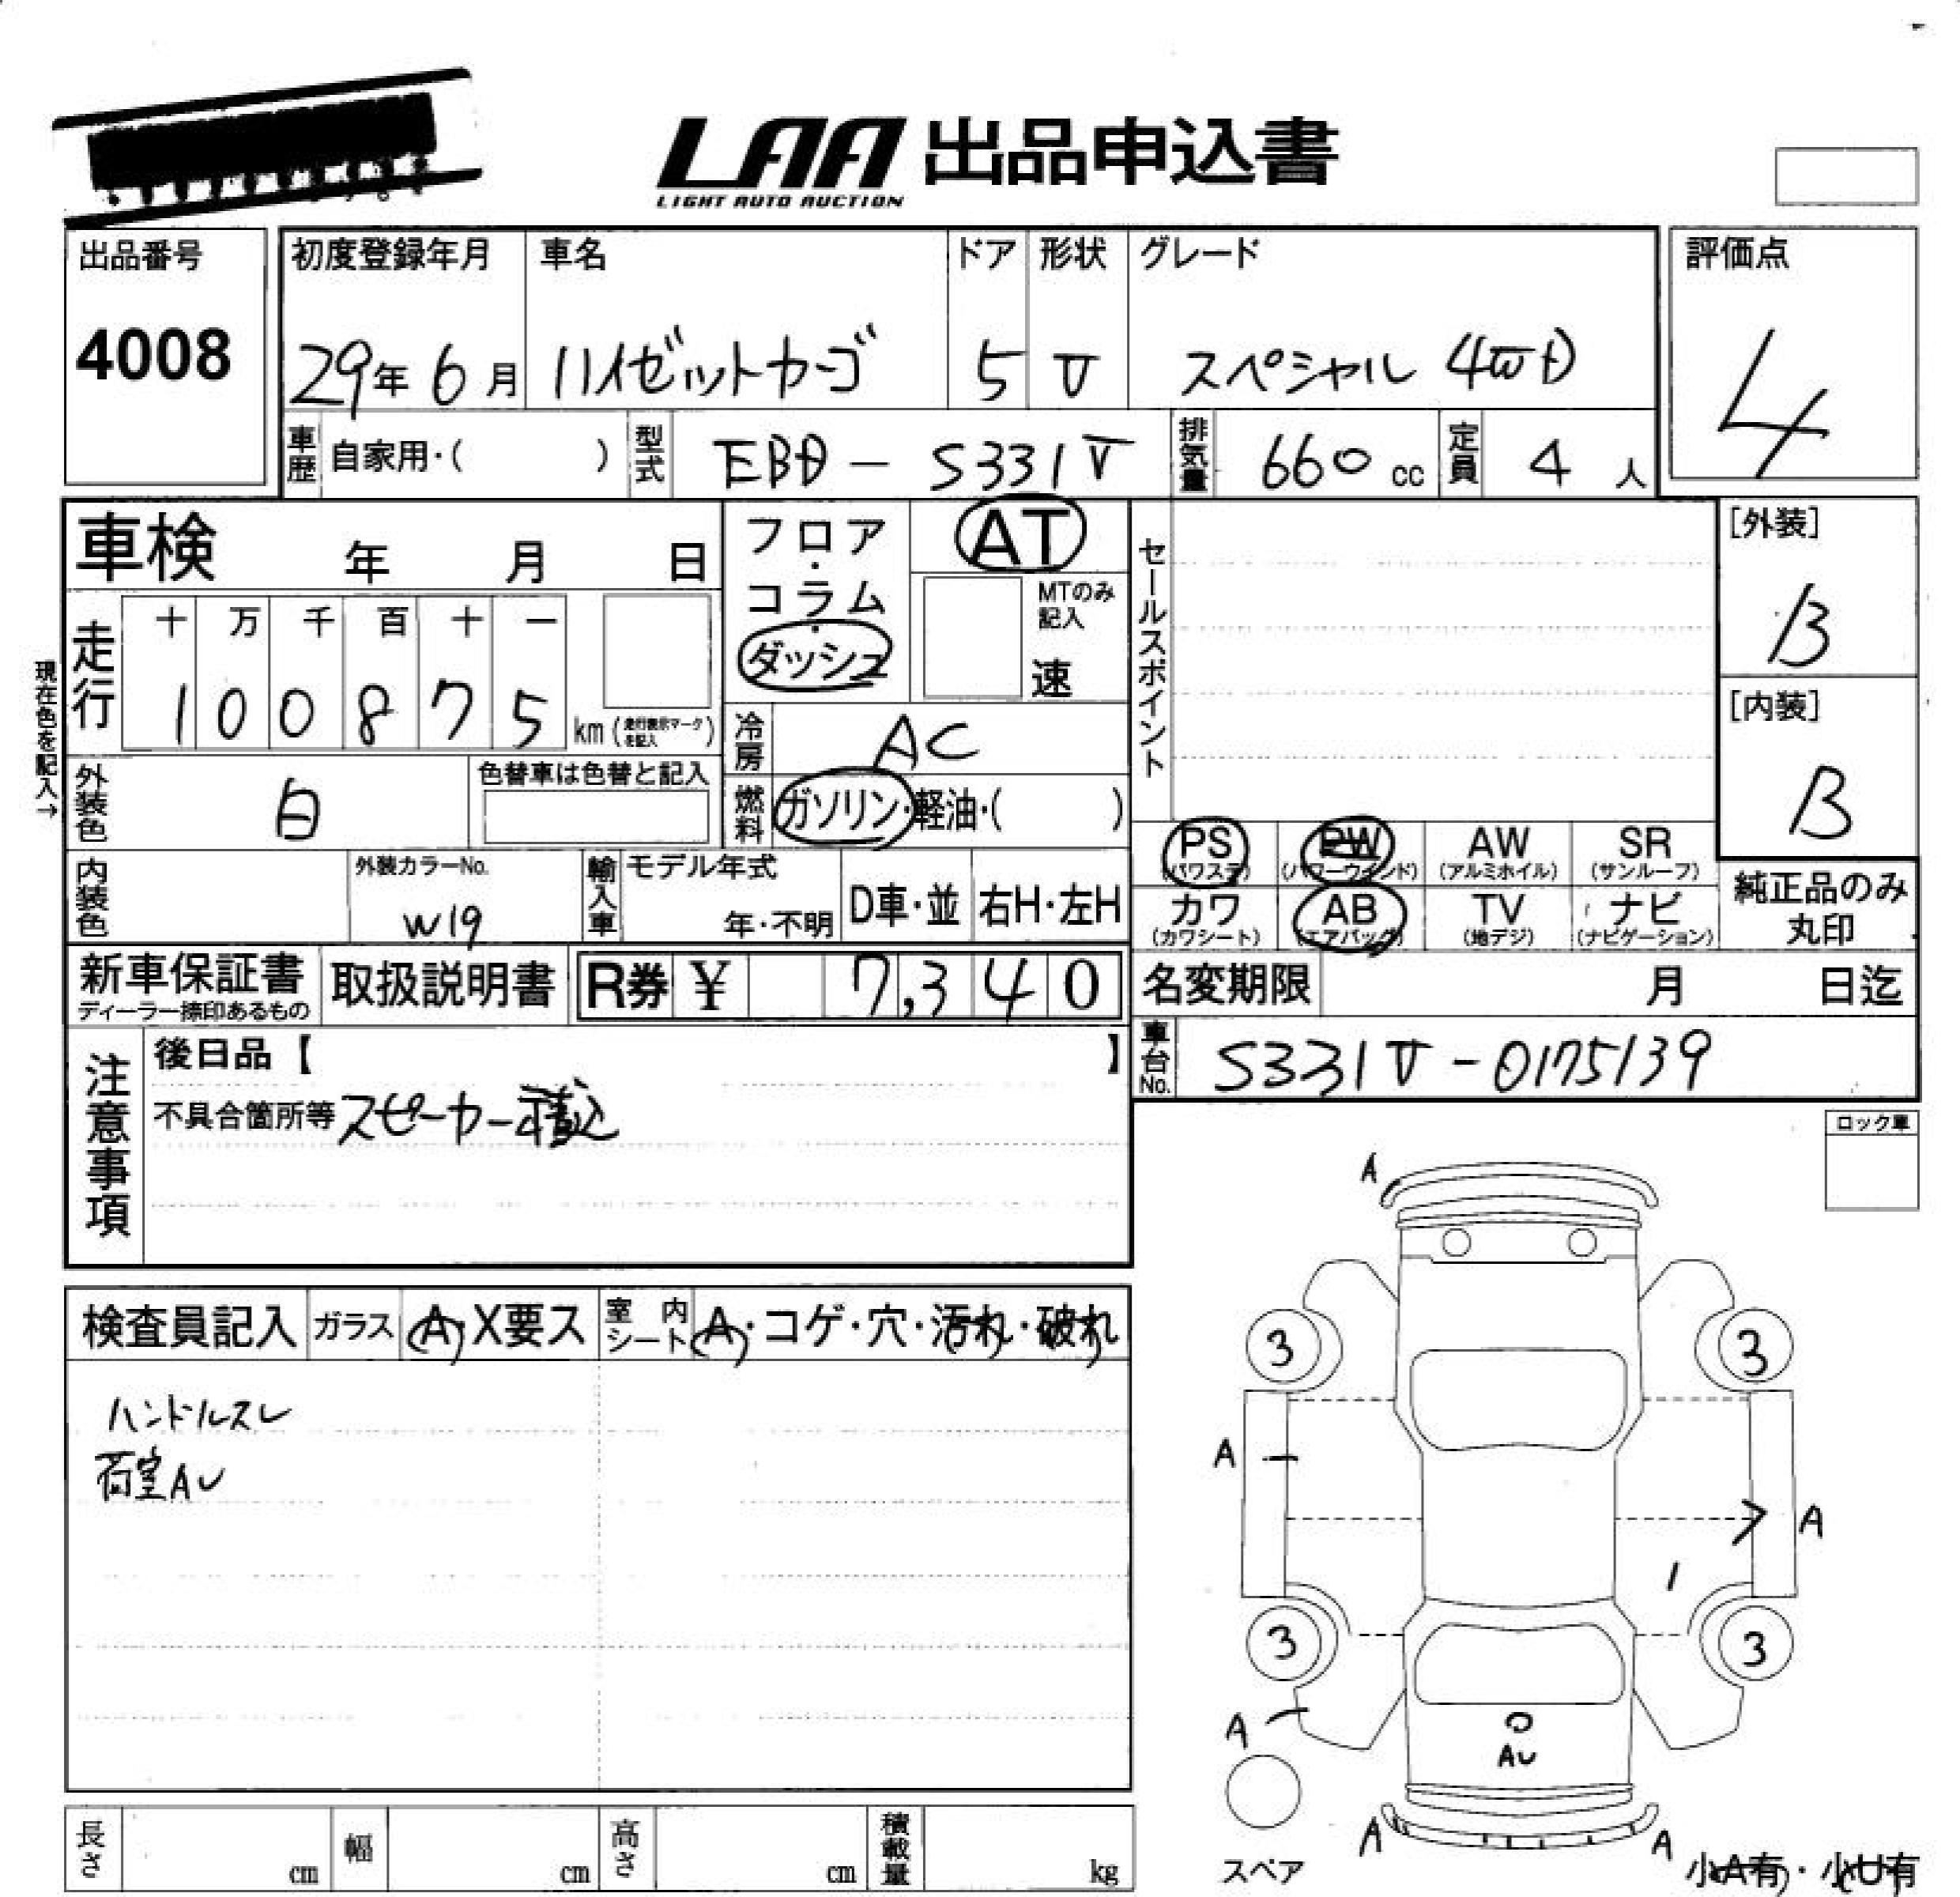 LAA 出品申込書
LIGHT AUTO AUCTION
出品番号
4008
初度登録年月
29年6月
車名
ハイゼットカーゴ
ドア
5
形状
V
グレード
スペシャル 4WD
評価点
4
車歴 自家用・( )
型式 EBD-S331V
排気量 660 cc
定員 4 人
車検 年 月 日
フロア・コラム・ダッシュ
AT
MTのみ記入
速
セールスポイント
[外装]
B
[内装]
B
現在色を記入→
走行 十 万 千 百 十 一
1 0 0 8 7 5 km (走行表示マークを記入)
冷房 AC
外装色 白
色替車は色替と記入
燃料 ガソリン・軽油・( )
PS (パワステ)
PW (パワーウインド)
AW (アルミホイル)
SR (サンルーフ)
カワ (カワシート)
AB (エアバッグ)
TV (地デジ)
ナビ (ナビゲーション)
純正品のみ丸印
内装色
外装カラーNo.
W19
輸入車 モデル年式
年・不明
D車・並
右H・左H
新車保証書
ディーラー捺印あるもの
取扱説明書
R券 ¥ 7,340
名変期限 月 日迄
車台No. S331V-0175139
注意事項
後日品【 】
不具合箇所等 スピーカー
ロック車
検査員記入
ガラス A・X要ス
室内シート A・コゲ・穴・汚れ・破れ
ハンドルスレ
荷室AU
A
3 3
A
A
3 3
A
AU
A A
スペア
小A有・小U有
長さ cm
幅 cm
高さ cm
積載量 kg